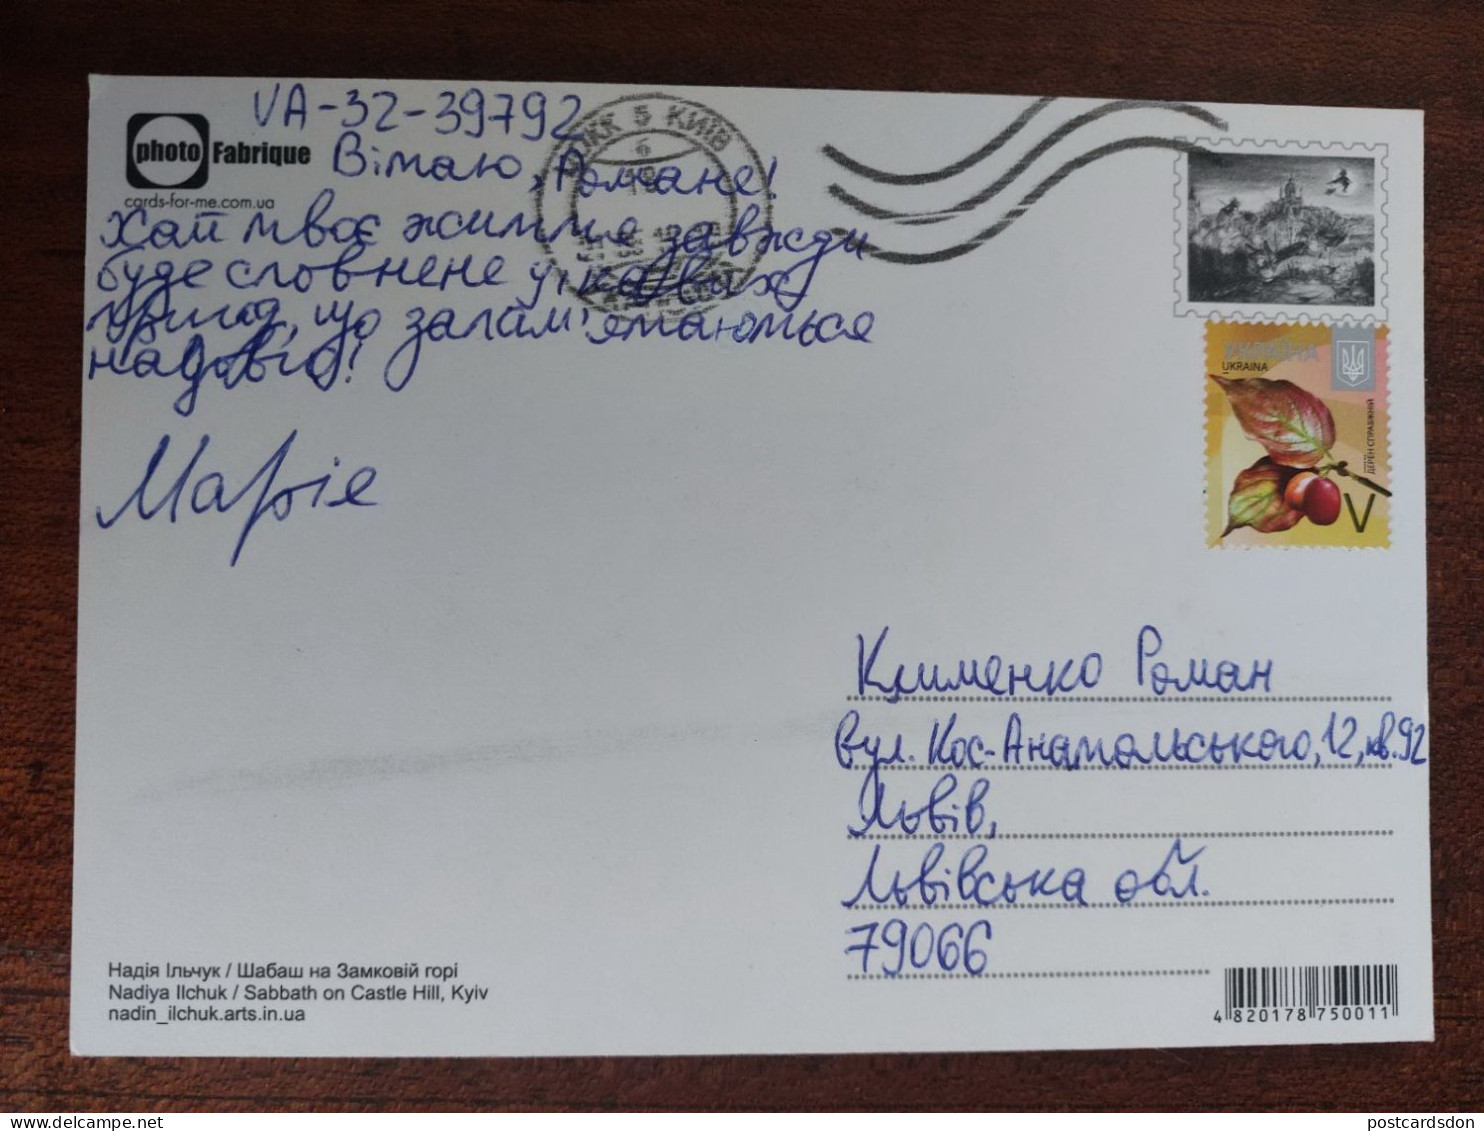 VA-32-39792
photo Fabrique
cards-for-me.com.ua
Вітаю, Романе!
Хай твоє життя завжди
буде сповнене цікавих
пригод, що запам'ятаються
надовго!
Марія
КИЇВ
УКРАЇНА
UKRAINA
ДЕРЕН СПРАВЖНІЙ
V
Клименко Роман
вул. Кос-Анатольського, 12, кв.92
Львів,
Львівська обл.
79066
Надія Ільчук / Шабаш на Замковій горі
Nadiya Ilchuk / Sabbath on Castle Hill, Kyiv
nadin_ilchuk.arts.in.ua
4 820178 750011
postcardsdon